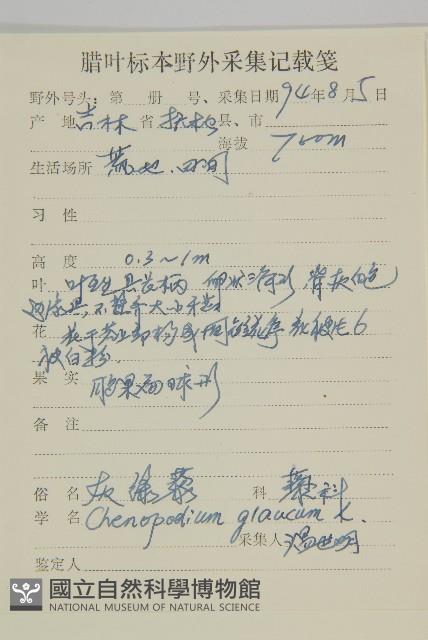 腊叶标本野外采集记载笺
野外号头：第 册 号、采集日期 94年8月5日
产 地 吉林 省 抚松 县、市
海拔 700m
生活场所 荒地、田间
习 性
高 度 0.3～1m
叶 叶互生具长柄 卵状 形 背灰白色
边缘具不整齐大小牙齿
花
被白粉
果 实 胞果扁球形
备 注
俗 名 灰绿藜 科 藜科
学 名 Chenopodium glaucum L.
采集人
鉴定人
國立自然科學博物館
NATIONAL MUSEUM OF NATURAL SCIENCE